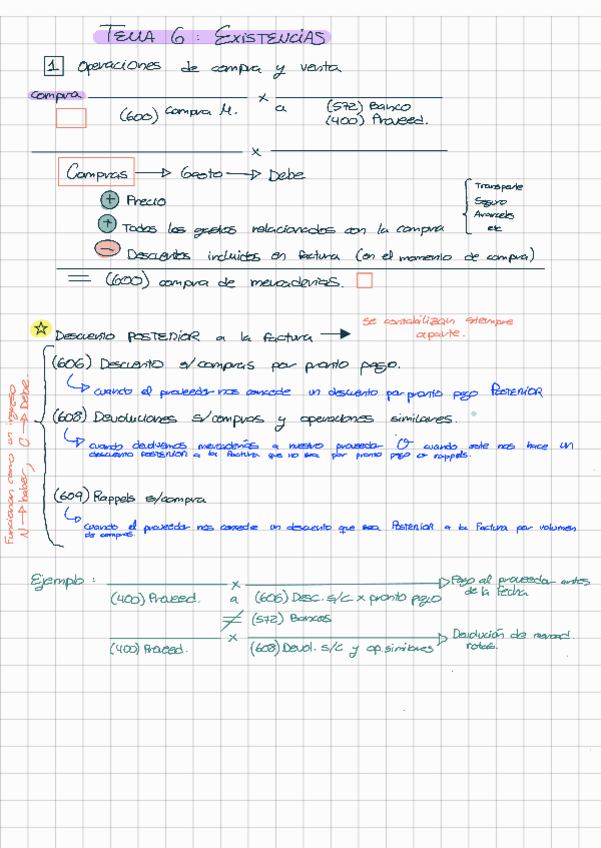 TEMA 6: EXISTENCIAS
1 Operaciones de compra y venta
compra
x
(600) Compra M. a (572) Banco
(400) Proveed.
x
Compras → Gasto → Debe
+ Precio
+ Todos los gastos relacionados con la compra
Transporte
Seguro
Aranceles
etc
- Descuentos incluidos en factura (en el momento de compra)
= (600) compra de mercaderías.
☆ Descuento POSTERIOR a la factura →
se contabilizan siempre
aparte.
Funcionan como un ingreso
N → haber, C → Debe
(606) Descuento s/compras por pronto pago.
cuando el proveedor nos concede un descuento por pronto pago POSTERIOR
(608) Devoluciones s/compras y operaciones similares.
cuando devolvemos mercaderías a nuestro proveedor O cuando este nos hace un
descuento POSTERIOR a la factura que no sea por pronto pago o rappels.
(609) Rappels s/compra
cuando el proveedor nos concede un descuento que sea POSTERIOR a la factura por volumen
de compras.
Ejemplo:
x
Pago al proveedor antes
de la fecha
(400) Proveed. a (606) Desc. s/c x pronto pago
≠ (572) Bancos
x
Devolución de mercad.
rotas.
(400) Proveed. (608) Devol. s/c y op. similares